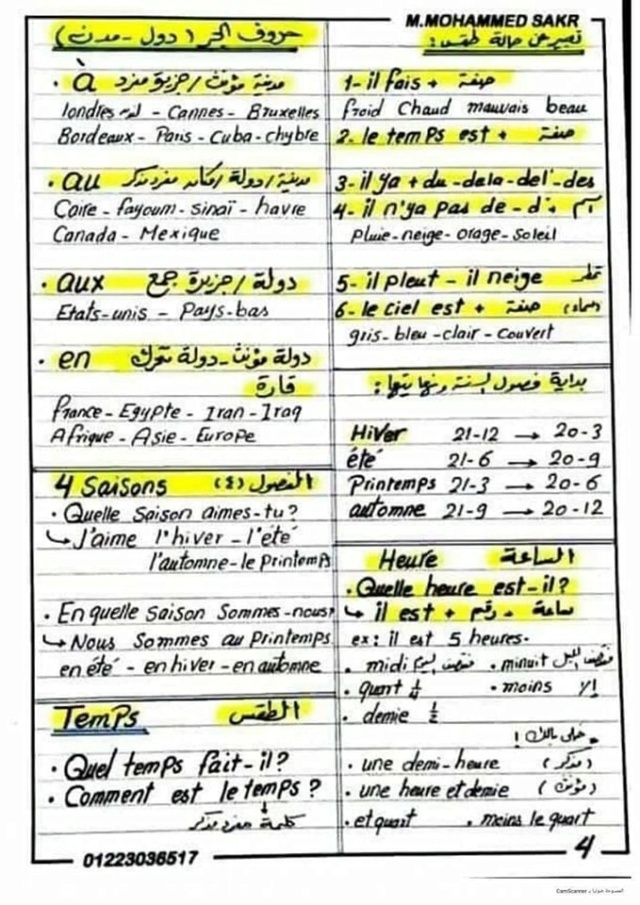 M.MOHAMMED SAKR
حروف الجر (دول - مدن)
à مدينة مؤنث / جزيرة مفرد
londres لندن - Cannes - Bruxelles
Bordeaux - Paris - Cuba - chybre
• au مدينة / دولة / مكان مفرد مذكر
Caire - fayoum - sinaï - havre
Canada - Mexique
• aux دولة / جزيرة جمع
Etats-unis - Pays-bas
• en دولة مؤنث - دولة تحرك
قارة
france - Egypte - Iran - Iraq
Afrique - Asie - Europe
4 Saisons الفصول (٤)
• Quelle Saison aimes-tu?
↳ J'aime l'hiver - l'été
l'automne - le Printemps
• En quelle saison Sommes-nous?
↳ Nous Sommes au Printemps
en été - en hiver - en automne
Temps الطقس
• Quel temps fait-il?
• Comment est le temps ?
كلمة مفرد مذكر
01223036517
نعبر عن حالة طقس:
1- il fais + صفة
froid Chaud mauvais beau
2. le temps est + صفة
3- il ya + du - dela - del' - des
4- il n'ya pas de - d' + اسم
Pluie - neige - orage - Soleil
5- il pleut - il neige تمطر
6- le ciel est + صفة (سماء)
gris - bleu - clair - Couvert
بداية فصول السنة ونهايتها:
Hiver 21-12 → 20-3
été 21-6 → 20-9
Printemps 21-3 → 20-6
automne 21-9 → 20-12
Heure الساعة
• Quelle heure est-il?
↳ il est + رقم + ساعة
ex: il est 5 heures.
• midi منتصف اليوم • minuit منتصف الليل
• quart ¼ • moins إلا
• demie ½
خلى بالك !
• une demi-heure (مذكر)
• une heure et demie (مؤنث)
• et quart • moins le quart
4
CamScanner